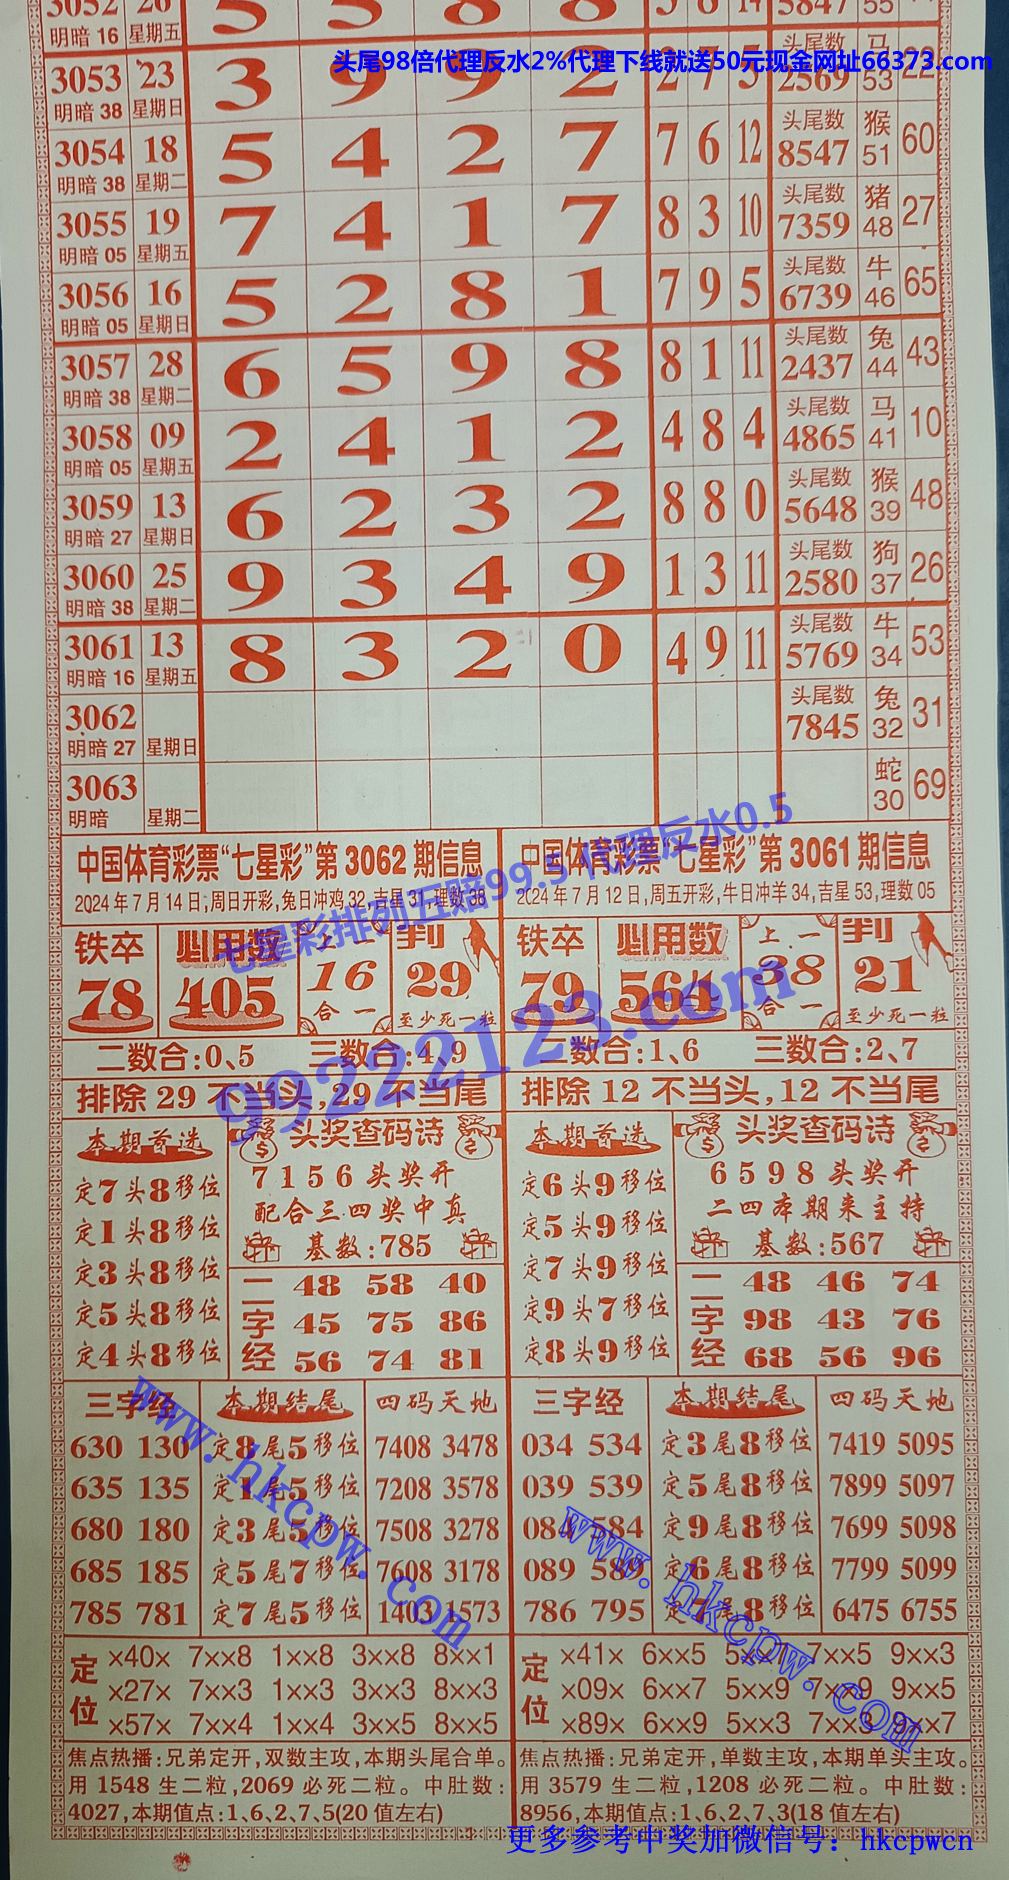 3052 26 5 5 8 8 5 6 14 5847 55
明暗 16 星期五
头尾98倍代理反水2%代理下线就送50元现金网址66373.com
3053 23 3 9 9 2 2 7 5 头尾数 2569 马 53 22
明暗 38 星期日
3054 18 5 4 2 7 7 6 12 头尾数 8547 猴 51 60
明暗 38 星期二
3055 19 7 4 1 7 8 3 10 头尾数 7359 猪 48 27
明暗 05 星期五
3056 16 5 2 8 1 7 9 5 头尾数 6739 牛 46 65
明暗 05 星期日
3057 28 6 5 9 8 8 1 11 头尾数 2437 兔 44 43
明暗 38 星期二
3058 09 2 4 1 2 4 8 4 头尾数 4865 马 41 10
明暗 05 星期五
3059 13 6 2 3 2 8 8 0 头尾数 5648 猴 39 48
明暗 27 星期日
3060 25 9 3 4 9 1 3 11 头尾数 2580 狗 37 26
明暗 38 星期二
3061 13 8 3 2 0 4 9 11 头尾数 5769 牛 34 53
明暗 16 星期五
3062 头尾数 7845 兔 32 31
明暗 27 星期日
3063 蛇 30 69
明暗 星期二
中国体育彩票“七星彩”第 3062 期信息
2024年7月14日;周日开彩,兔日冲鸡32,吉星31,理数38
铁卒 78
必用数 405
上一 16 合一
29 至少死一粒
二数合:0、5 三数合:4、9
排除 29 不当头,29 不当尾
本期首选
定7头8移位
定1头8移位
定3头8移位
定5头8移位
定4头8移位
头奖查码诗
7156头奖开
配合三四奖中真
基数:785
二字经
48 58 40
45 75 86
56 74 81
三字经
630 130
635 135
680 180
685 185
785 781
本期结尾
定8尾5移位
定1尾5移位
定3尾5移位
定5尾7移位
定7尾5移位
四码天地
7408 3478
7208 3578
7508 3278
7608 3178
1403 1573
定位
×40× 7××8 1××8 3××8 8××1
×27× 7××3 1××3 3××3 8××3
×57× 7××4 1××4 3××5 8××5
焦点热播:兄弟定开,双数主攻,本期头尾合单。
用 1548 生二粒,2069 必死二粒。中肚数:
4027,本期值点:1、6、2、7、5(20 值左右)
中国体育彩票“七星彩”第 3061 期信息
2024年7月12日,周五开彩,牛日冲羊34,吉星53,理数05
铁卒 79
必用数 564
上一 38 合一
21 至少死一粒
二数合:1、6 三数合:2、7
排除 12 不当头,12 不当尾
本期首选
定6头9移位
定5头9移位
定7头9移位
定9头7移位
定8头9移位
头奖查码诗
6598头奖开
二四本期来主持
基数:567
二字经
48 46 74
98 43 76
68 56 96
三字经
034 534
039 539
084 584
089 589
786 795
本期结尾
定3尾8移位
定5尾8移位
定9尾8移位
定6尾8移位
尾8移位
四码天地
7419 5095
7899 5097
7699 5098
7799 5099
6475 6755
定位
×41× 6××5 5××1 7××5 9××3
×09× 6××7 5××9 7××9 9××5
×89× 6××9 5××3 9××7
焦点热播:兄弟定开,单数主攻,本期单头主攻。
用 3579 生二粒,1208 必死二粒。中肚数:
8956,本期值点:1、6、2、7、3(18 值左右)
七星彩排列五赔99.5 代理反水0.5
09922123.com
www.hkcpw.com
www.hkcpw.com
更多参考中奖加微信号：hkcpwcn